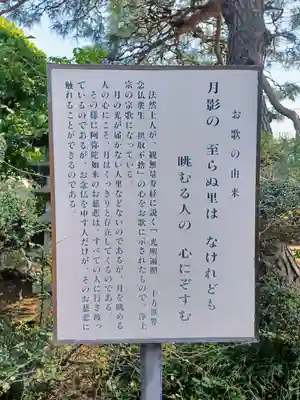 お歌の由来
月影の 至らぬ里は なけれども
眺むる人の 心にぞすむ
法然上人が、観無量寿経に説く「光明遍照 十方世界
念仏衆生 摂取不捨」の心をお歌に示されたもので、浄土
宗の宗歌になっている
月の光が届かない人里などないのであるが、月を眺める
人の心にこそ、月はくっきりと存在してくるのである
その様に阿弥陀如来のお慈悲は、すべての人に行き渡っ
ているのであるが、お念仏を申す人だけが、そのお慈悲に
触れることができるのである